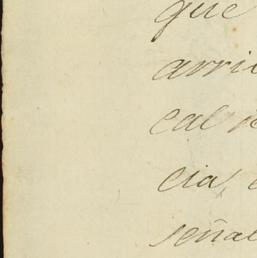 que
arri
cal
cia,
señal